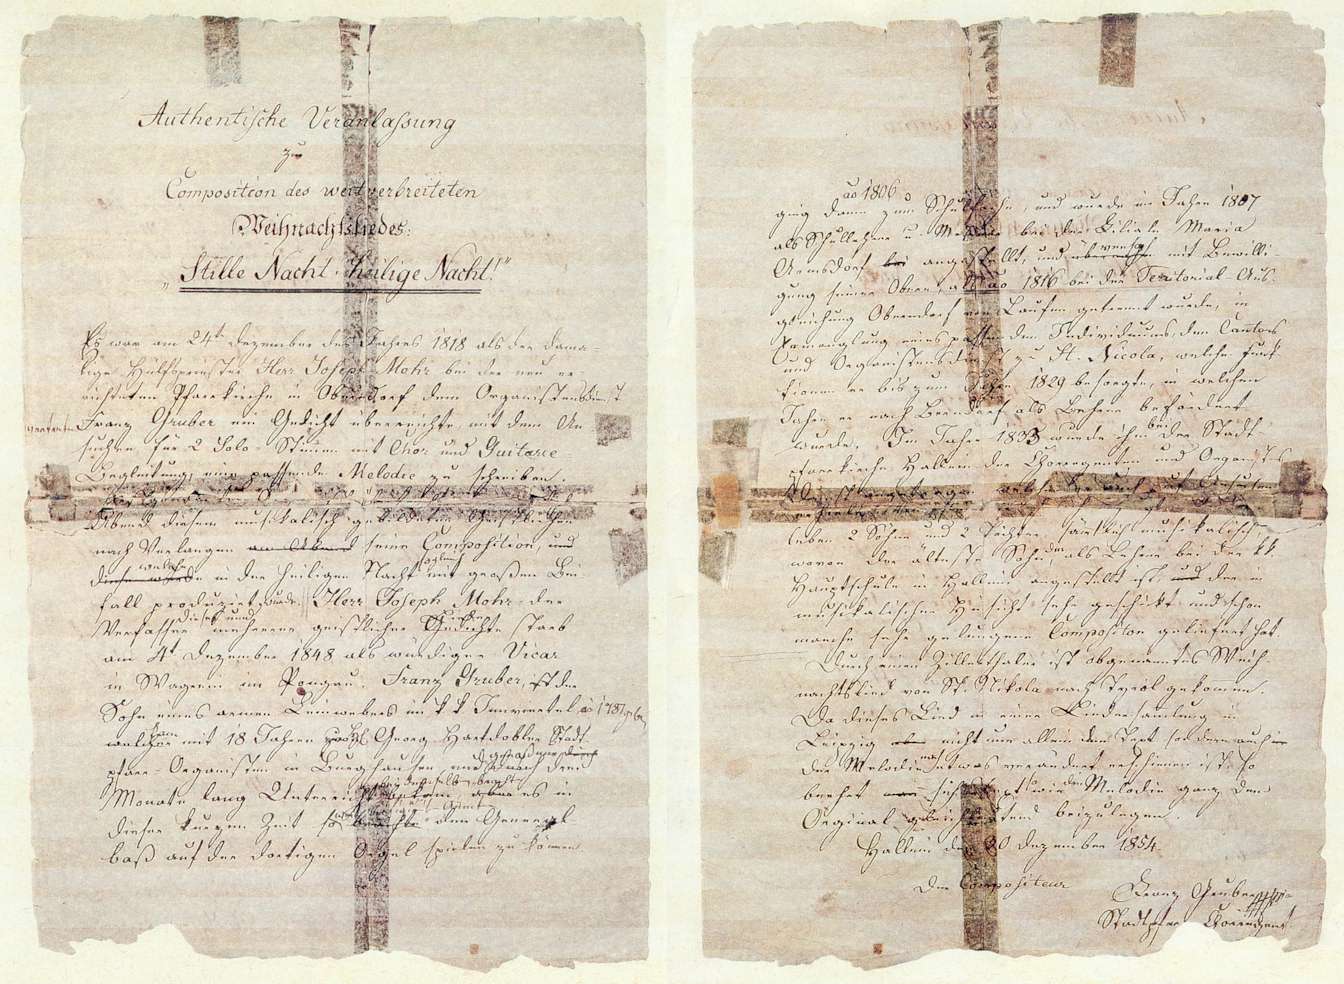 Authentische Veranlassung
zur
Composition des weitverbreiteten
Weihnachtsliedes:
„Stille Nacht, heilige Nacht!"
Es war am 24t Dezember des Jahres 1818 als der dama-
lige Hülfspriester Herr Joseph Mohr bei der neu er-
richteten Pfarrkirche in Oberndorf dem Organistendienst
Franz Gruber ein Gedicht überreichte, mit dem An
suchen für 2 Solo-Stimmen mit Chor und Guitarre-
Begleitung, eine passende Melodie zu schreiben.
Abend diesem musikalisch
nach Verlangen am Abend seine Composition, und
welche sogleich
in der heiligen Nacht mit großem Bei
fall produzirt wurde. Herr Joseph Mohr der
dieses und
Verfasser mehrerer geistlicher Gedichte starb
am 4t Dezember 1848 als würdiger Vicar
in Wagrein im Pongau. Franz Gruber, ist der
Sohn eines armen Leinwebers im k k Innviertel, ao 1787 geboren
kam
mit 18 Jahren Georg Hartdobler Stadt-
pfarr-Organisten in Burghausen nur drei
Monate lang Unterricht es in
dieser kurzen Zeit den General-
baß auf der dortigen Orgel spielen zu können
ao 1806
ging dann zum Schulfache, und wurde im Jahre 1807
als Schullehrer u. Meßner bei der Filiale Maria
Arnsdorf bei angestellt, und mit Bewilli-
gung seiner Obern, als ao 1816 bei der Teritorial-Aus-
gleichung Oberndorf von Laufen getrennt wurde, in
Ermanglung eines passenden Individuums den Cantors
und Organistendienst zu St. Nicola, welche Funk
tionen er bis zum Jahre 1829 besorgte, in welchem
Jahre er nach Berndorf als Lehrer befördert
wurde. Im Jahre 1833 wurde ihm bei der Stadt
pfarrkirche Hallein der Chorregenten und Organisten
leben 2 Söhne und 2 Töchter sämtlich musikalisch,
wovon der älteste Sohn, als Lehrer bei der k.k.
Hauptschule in Hallein angestellt ist, und der in
musikalischer Hinsicht sehr geschickt und schon
manche sehr gelungene Composition geliefert hat.
Durch einen Zillerthaler ist obgenanntes Weih-
nachtslied von St. Nikola nach Tyrol gekommen.
Da dieses Lied in einer Liedersamlung in
Leipzig nicht nur allein dem Text sondern auch
der Melodie nach etwas verändert erschienen ist, so
beehrt sich die Melodie ganz dem
Orginal gleichlautend beizulegen.
Hallein den 30 Dezember 1854.
Der Compositeur
Franz Gruber
Stadtpfarr Chorregent